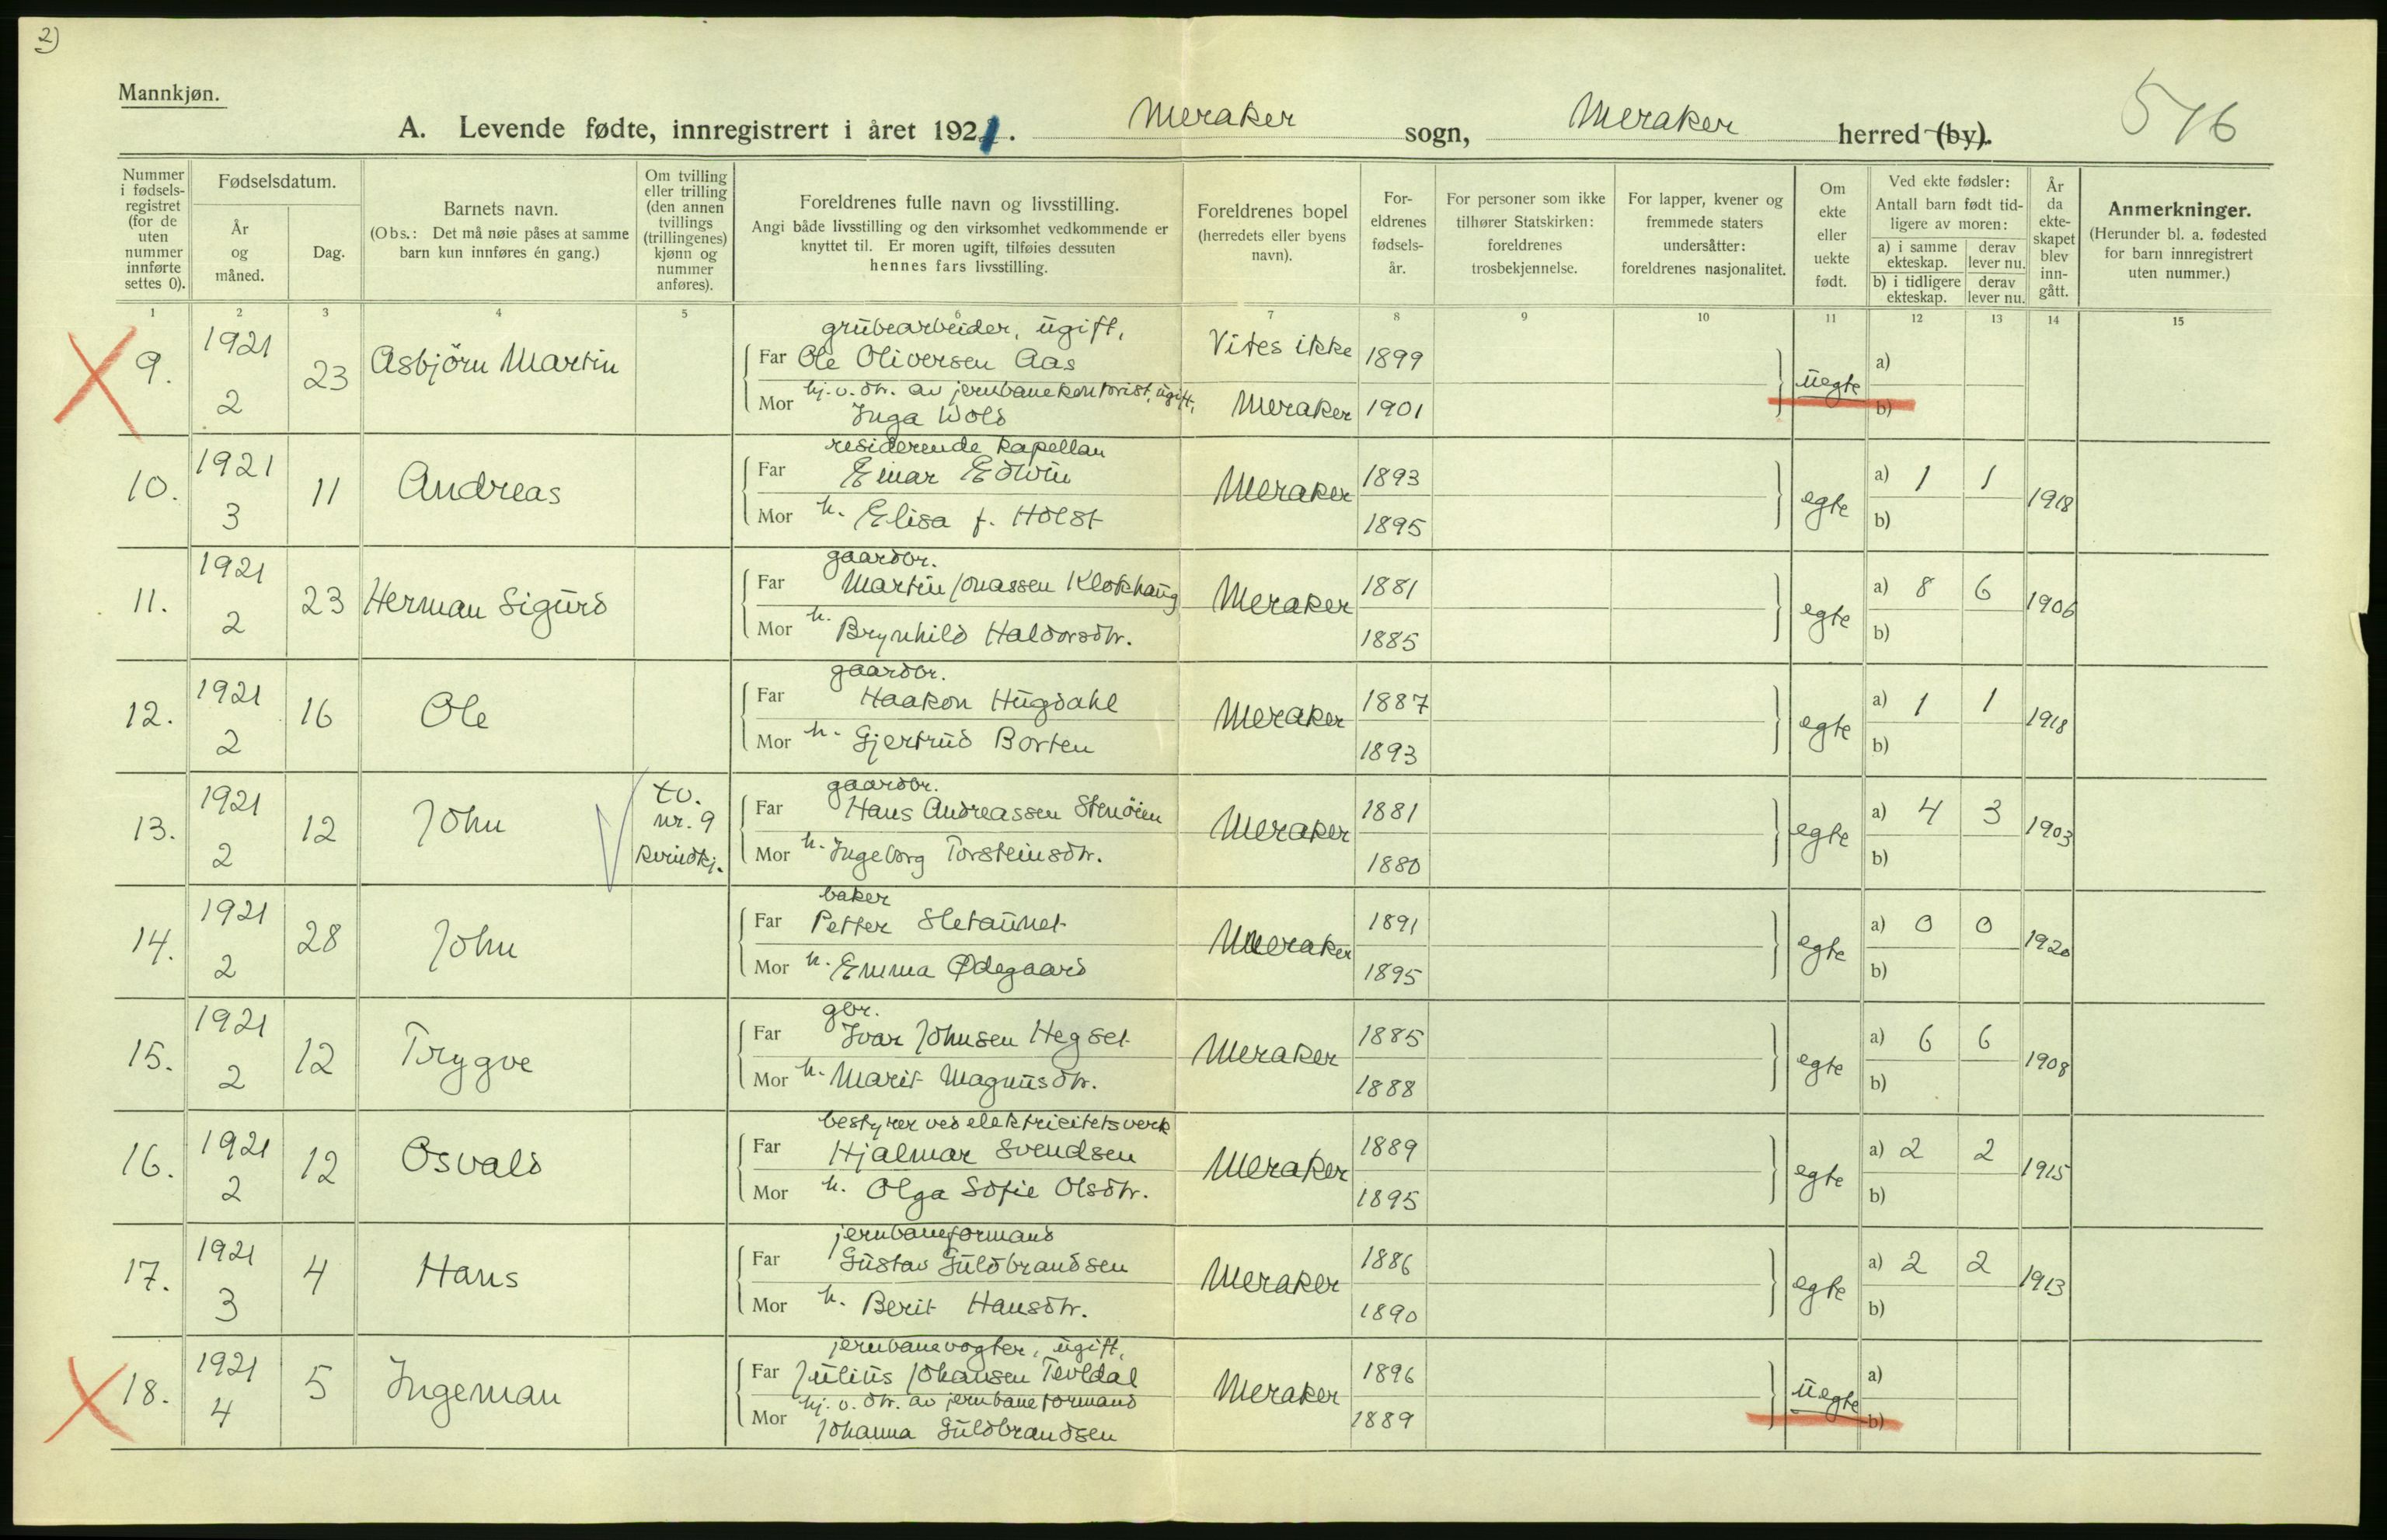 2)
Mannkjøn.
A. Levende fødte, innregistrert i året 1921. Meraker sogn, Meraker herred (by).
516
Nummer i fødsels-registret (for de uten nummer innførte settes 0).
Fødselsdatum.
År og måned.
Dag.
Barnets navn.
(Obs.: Det må nøie påses at samme barn kun innføres én gang.)
Om tvilling eller trilling (den annen tvillings (trillingenes) kjønn og nummer anføres).
Foreldrenes fulle navn og livsstilling.
Angi både livsstilling og den virksomhet vedkommende er knyttet til. Er moren ugift, tilføies dessuten hennes fars livsstilling.
Foreldrenes bopel (herredets eller byens navn).
For-eldrenes fødsels-år.
For personer som ikke tilhører Statskirken: foreldrenes trosbekjennelse.
For lapper, kvener og fremmede staters undersåtter: foreldrenes nasjonalitet.
Om ekte eller uekte født.
Ved ekte fødsler: Antall barn født tid-ligere av moren:
a) i samme ekteskap. derav lever nu.
b) i tidligere ekteskap. derav lever nu.
År da ekte-skapet blev inn-gått.
Anmerkninger.
(Herunder bl. a. fødested for barn innregistrert uten nummer.)
1 2 3 4 5 6 7 8 9 10 11 12 13 14 15
grubearbeider, ugift,
9. 1921 2 23 Asbjörn Martin Far Ole Oliversen Aas Vites ikke 1899 uegte a)
hj. v. dtr. av jernbanekontorist, ugift,
Mor Inga Wold Meraker 1901 b)
residerende kapellan
10. 1921 3 11 Andreas Far Einar Edwin Meraker 1893 egte a) 1 1 1918
Mor h. Elisa f. Holst 1895 b)
gaardbr.
11. 1921 2 23 Herman Sigurd Far Martin Jonassen Klokhaug Meraker 1881 egte a) 8 6 1906
Mor h. Brynhild Haldorsdtr. 1885 b)
gaardbr.
12. 1921 2 16 Ole Far Haakon Hugdahl Meraker 1887 egte a) 1 1 1918
Mor h. Gjertrud Borten 1893 b)
gaardbr.
13. 1921 2 12 John tv. nr. 9 kvindkj. Far Hans Andreassen Stenöien Meraker 1881 egte a) 4 3 1903
Mor h. Ingeborg Torsteinsdtr. 1880 b)
baker
14. 1921 2 28 John Far Petter Sletaunet Meraker 1891 egte a) 0 0 1920
Mor h. Emma Ødegaard 1895 b)
gbr.
15. 1921 2 12 Trygve Far Ivar Johnsen Hegset Meraker 1885 egte a) 6 6 1908
Mor h. Marit Magnusdtr. 1888 b)
bestyrer ved elektricitetsverk
16. 1921 2 12 Osvald Far Hjalmar Svendsen Meraker 1889 egte a) 2 2 1915
Mor h. Olga Sofie Olsdtr. 1895 b)
jernbaneformand
17. 1921 3 4 Hans Far Gustav Guldbrandsen Meraker 1886 egte a) 2 2 1913
Mor h. Berit Hansdtr. 1890 b)
jernbanevogter, ugift,
18. 1921 4 5 Ingeman Far Julius Johansen Tevldal Meraker 1896 uegte a)
hj. v. dtr. av jernbaneformand
Mor Johanna Guldbrandsen 1889 b)